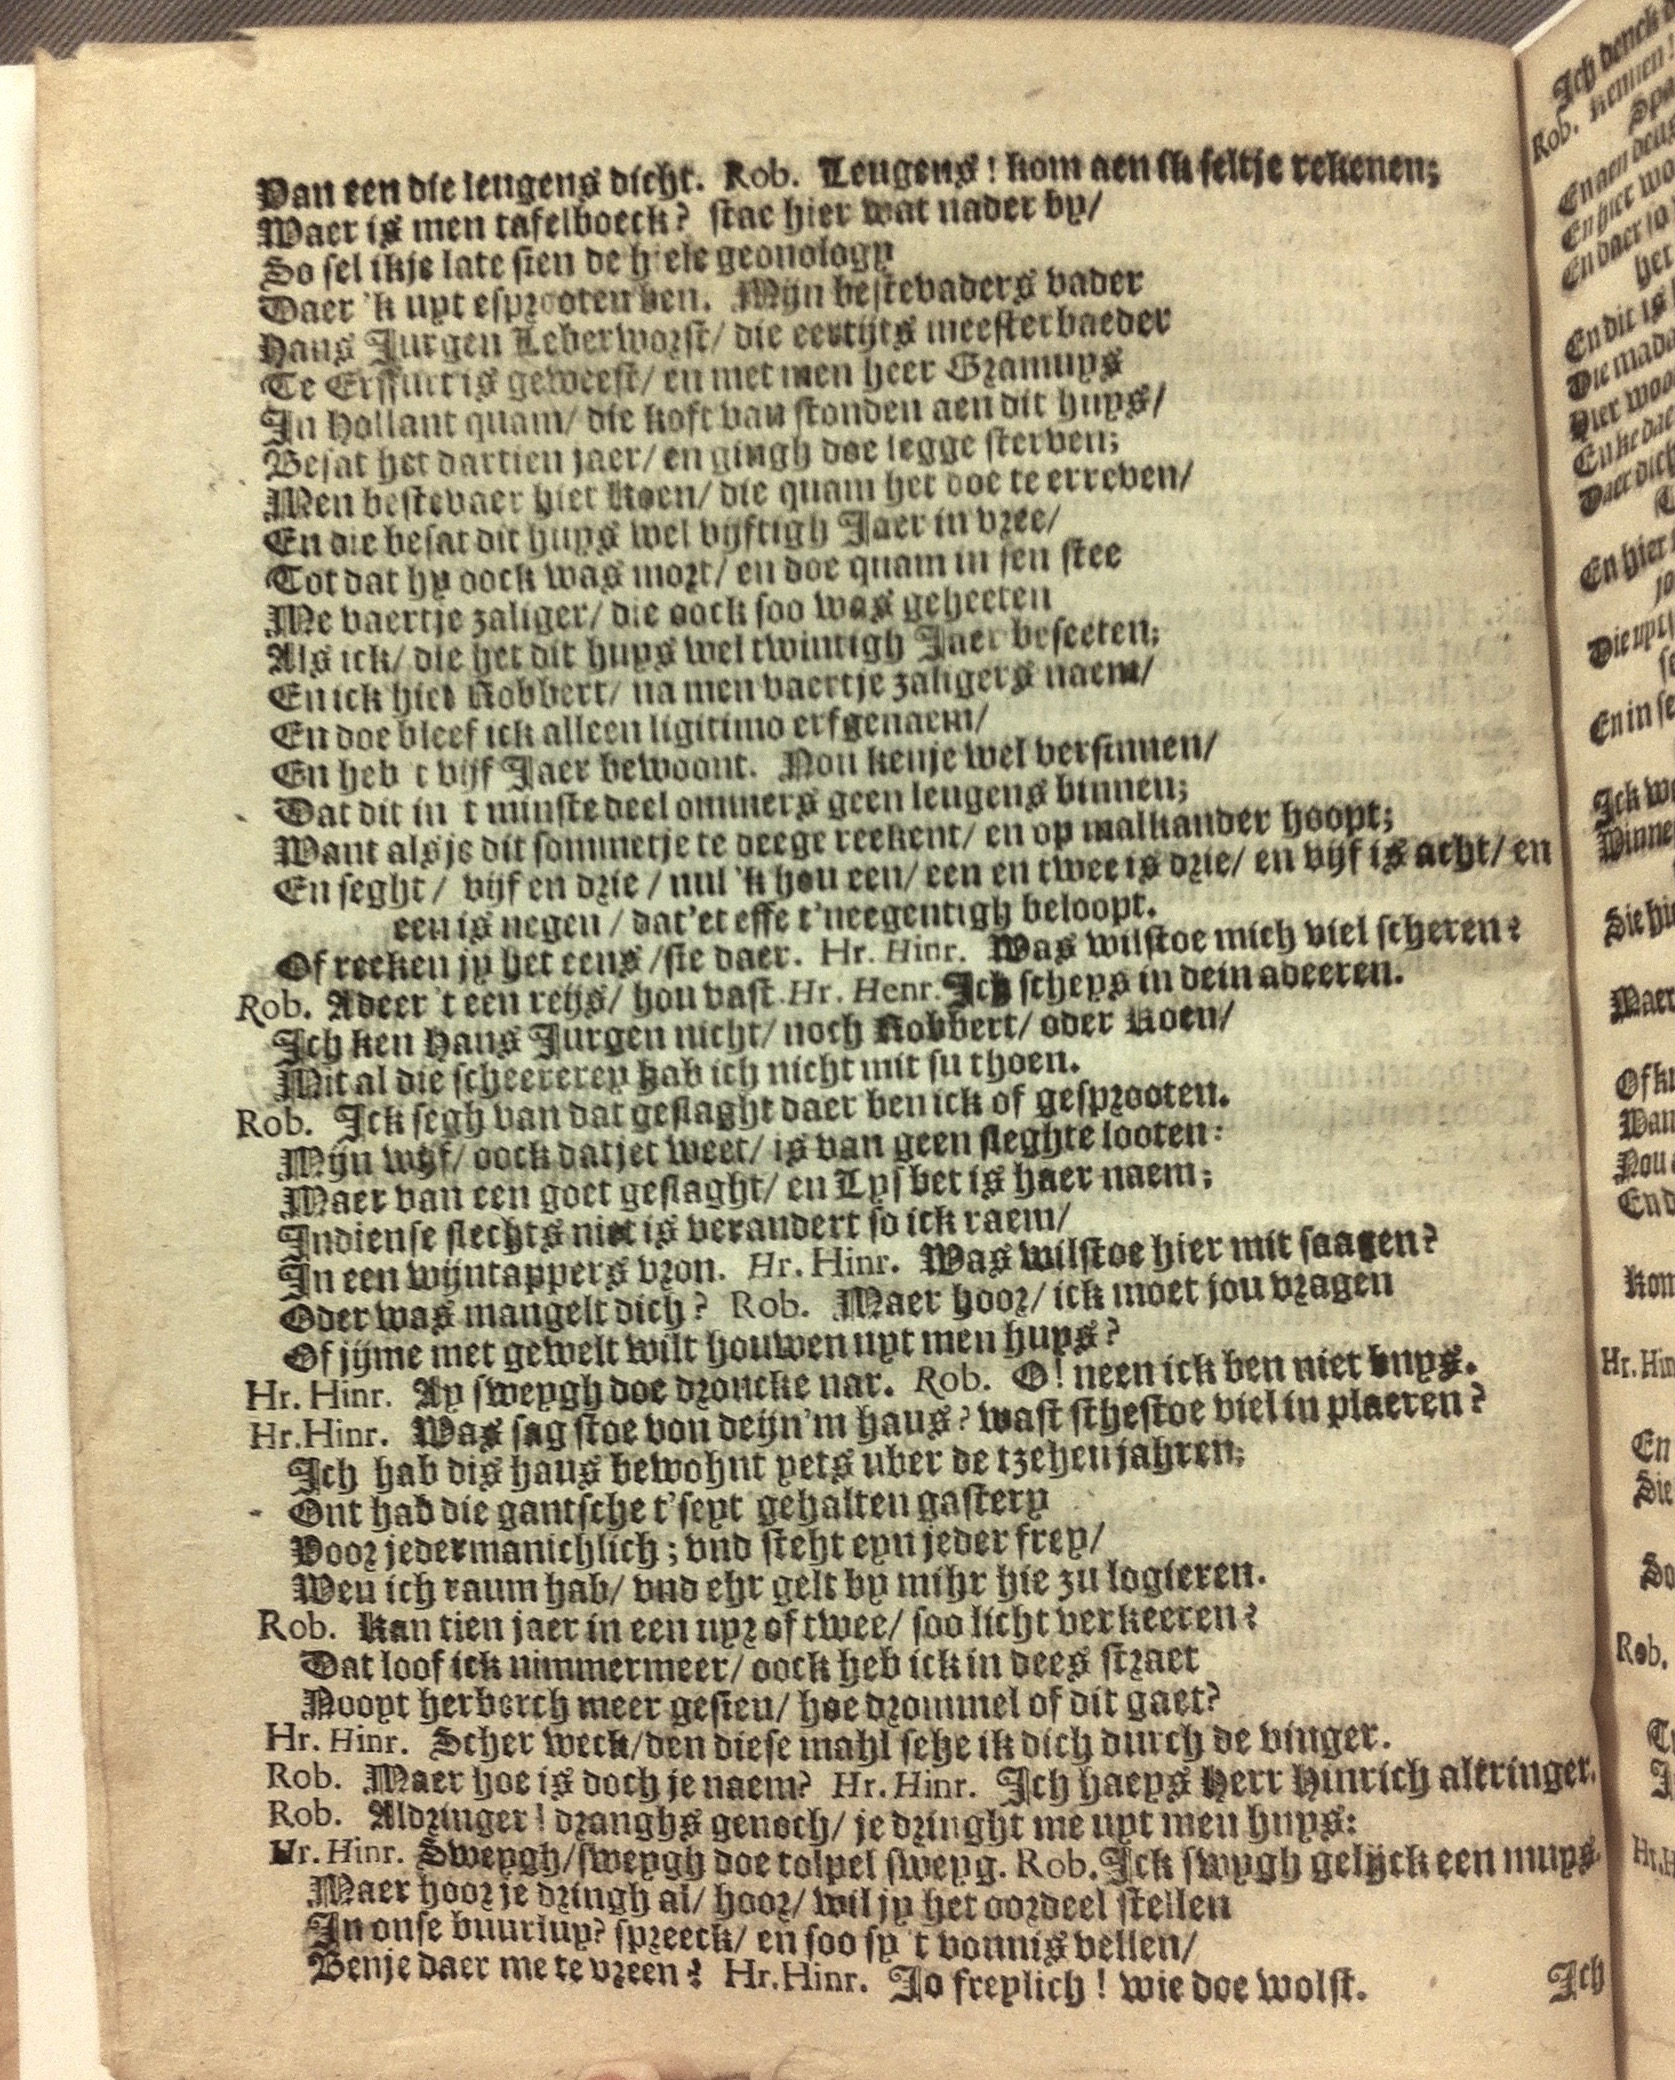 Van een die leugens dicht. Rob. Leugens! kom aen ik seltje rekenen;
Waer is men tafelboeck? stae hier wat nader by/
So sel ikje late sien de hiele geonology
Daer 'k uyt esprooten ben. Mijn bestevaders vader
Hans Jurgen Leberworst/ die eertijts meester baeder
Te Erffurt is geweest/ en met men heer Gramuys
In Hollant quam/ die koft van stonden aen dit huys/
Besat het dartien jaer/ en gingh doe legge sterven;
Men bestevaer hiet Koen/ die quam het doe te erreven/
En die besat dit huys wel vijftigh Jaer in vree/
Tot dat hy oock was mort/ en doe quam in sen stee
Me vaertje zaliger/ die oock soo was geheeten
Als ick/ die het dit huys wel twintigh Jaer beseeten;
En ick hiet Robbert/ na men vaertje zaligers naem/
En doe bleef ick alleen ligitimo erfgenaem/
En heb t vijf Jaer bewoont. Nou kenje wel versinnen/
Dat dit in t minste deel ommers geen leugens binnen;
Want als je dit sommetje te deege reekent/ en op malkander hoopt;
En seght / vijf en drie / nul 'k hou een/ een en twee is drie/ en vijf is acht/ en
een is negen / dat'et effe t'neegentigh beloopt.
Of reeken jy het eens /sie daer. Hr. Hinr. Was wilstoe mich viel scheren?
Rob. Adeer 't een reys/ hou vast. Hr. Henr. Ich scheys in dein adeeren.
Ich ken Hans Jurgen nicht/ noch Robbert/ oder Koen/
Mit al die scheererey hab ich nicht mit su thoen.
Rob. Ick segh van dat geslaght daer ben ick of gesprooten.
Mijn wijf/ oock datjet weet/ is van geen sleghte looten:
Maer van een goet geslaght/ en Lysbet is haer naem;
Indiense slechts niet is verandert so ick raem/
In een wijntappers vron. Hr. Hinr. Was wilstoe hier mit saagen?
Oder was mangelt dich? Rob. Maer hoor/ ick moet jou vragen
Of jyme met gewelt wilt houwen uyt men huys?
Hr. Hinr. Ay sweygh doe droncke nar. Rob. O! neen ick ben niet buys.
Hr. Hinr. Was sag stoe von deijn'm haus? wast sthestoe viel in plaeren?
Ich hab dis haus bewohnt yets uber de tzehen jahren;
Ont hab die gantsche t'seyt gehalten gastery
Voor jedermanichlich; vnd steht eyn jeder frey/
Wen ich raum hab/ vnd ehr gelt by mihr hie zu logieren.
Rob. Kan tien jaer in een uyr of twee/ soo licht verkeeren?
Dat loof ick nimmermeer/ oock heb ick in dees straet
Nooyt herberch meer gesien/ hoe drommel of dit gaet?
Hr. Hinr. Scher weck/den diese mahl sehe ik dich durch de vinger.
Rob. Maer hoe is doch je naem? Hr. Hinr. Ich haeys Herr Hinrich altringer.
Rob. Aldringer! dranghs genoch/ je dringht me uyt men huys:
Hr. Hinr. Sweygh/sweygh doe tolpel sweyg. Rob. Ick swygh gelijck een muys.
Maer hoor je dringh al/ hoor/ wil jy het oordeel stellen
In onse buurluy? spreeck/ en soo sy 't vonnis vellen/
Benje daer me te vreen? Hr. Hinr. Jo freylich! wie doe wolst.
Ich